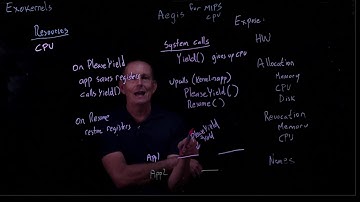 Exokernels
Aegis for MIPS
CPU
Expose
Resources
CPU
HW
System calls
Yield() gives up CPU
On PleaseYield
app saves registers
calls Yield()
Upcalls (kernel→app)
PleaseYield()
Resume()
Allocation
Memory
CPU
Disk
On Resume
restore registers
Revocation
Memory
CPU
Names
PleaseYield
Yield
App1
App2